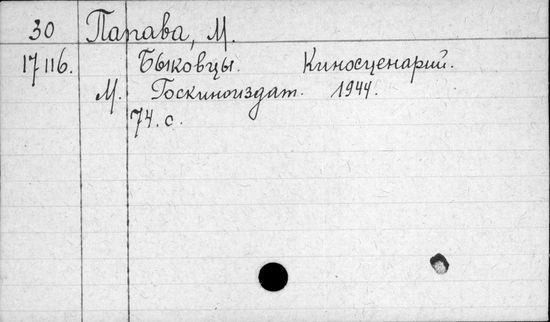 30 Папава, М.
17116. Быковцы. Киносценарий.
М. Госкиноиздат. 1944.
74. с.